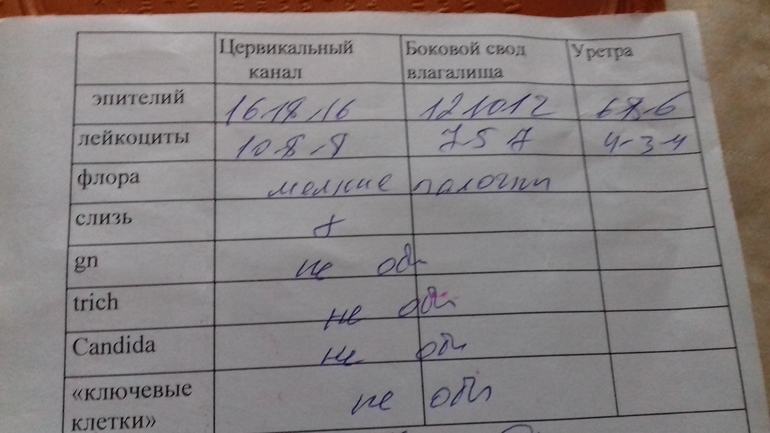 Цервикальный канал Боковой свод влагалища Уретра
эпителий 16-18-16 12-10-12 6-8-6
лейкоциты 10-8-8 7-5-7 4-3-4
флора мелкие палочки
слизь +
gn не обн
trich не обн
Candida не обн
«ключевые клетки» не обн